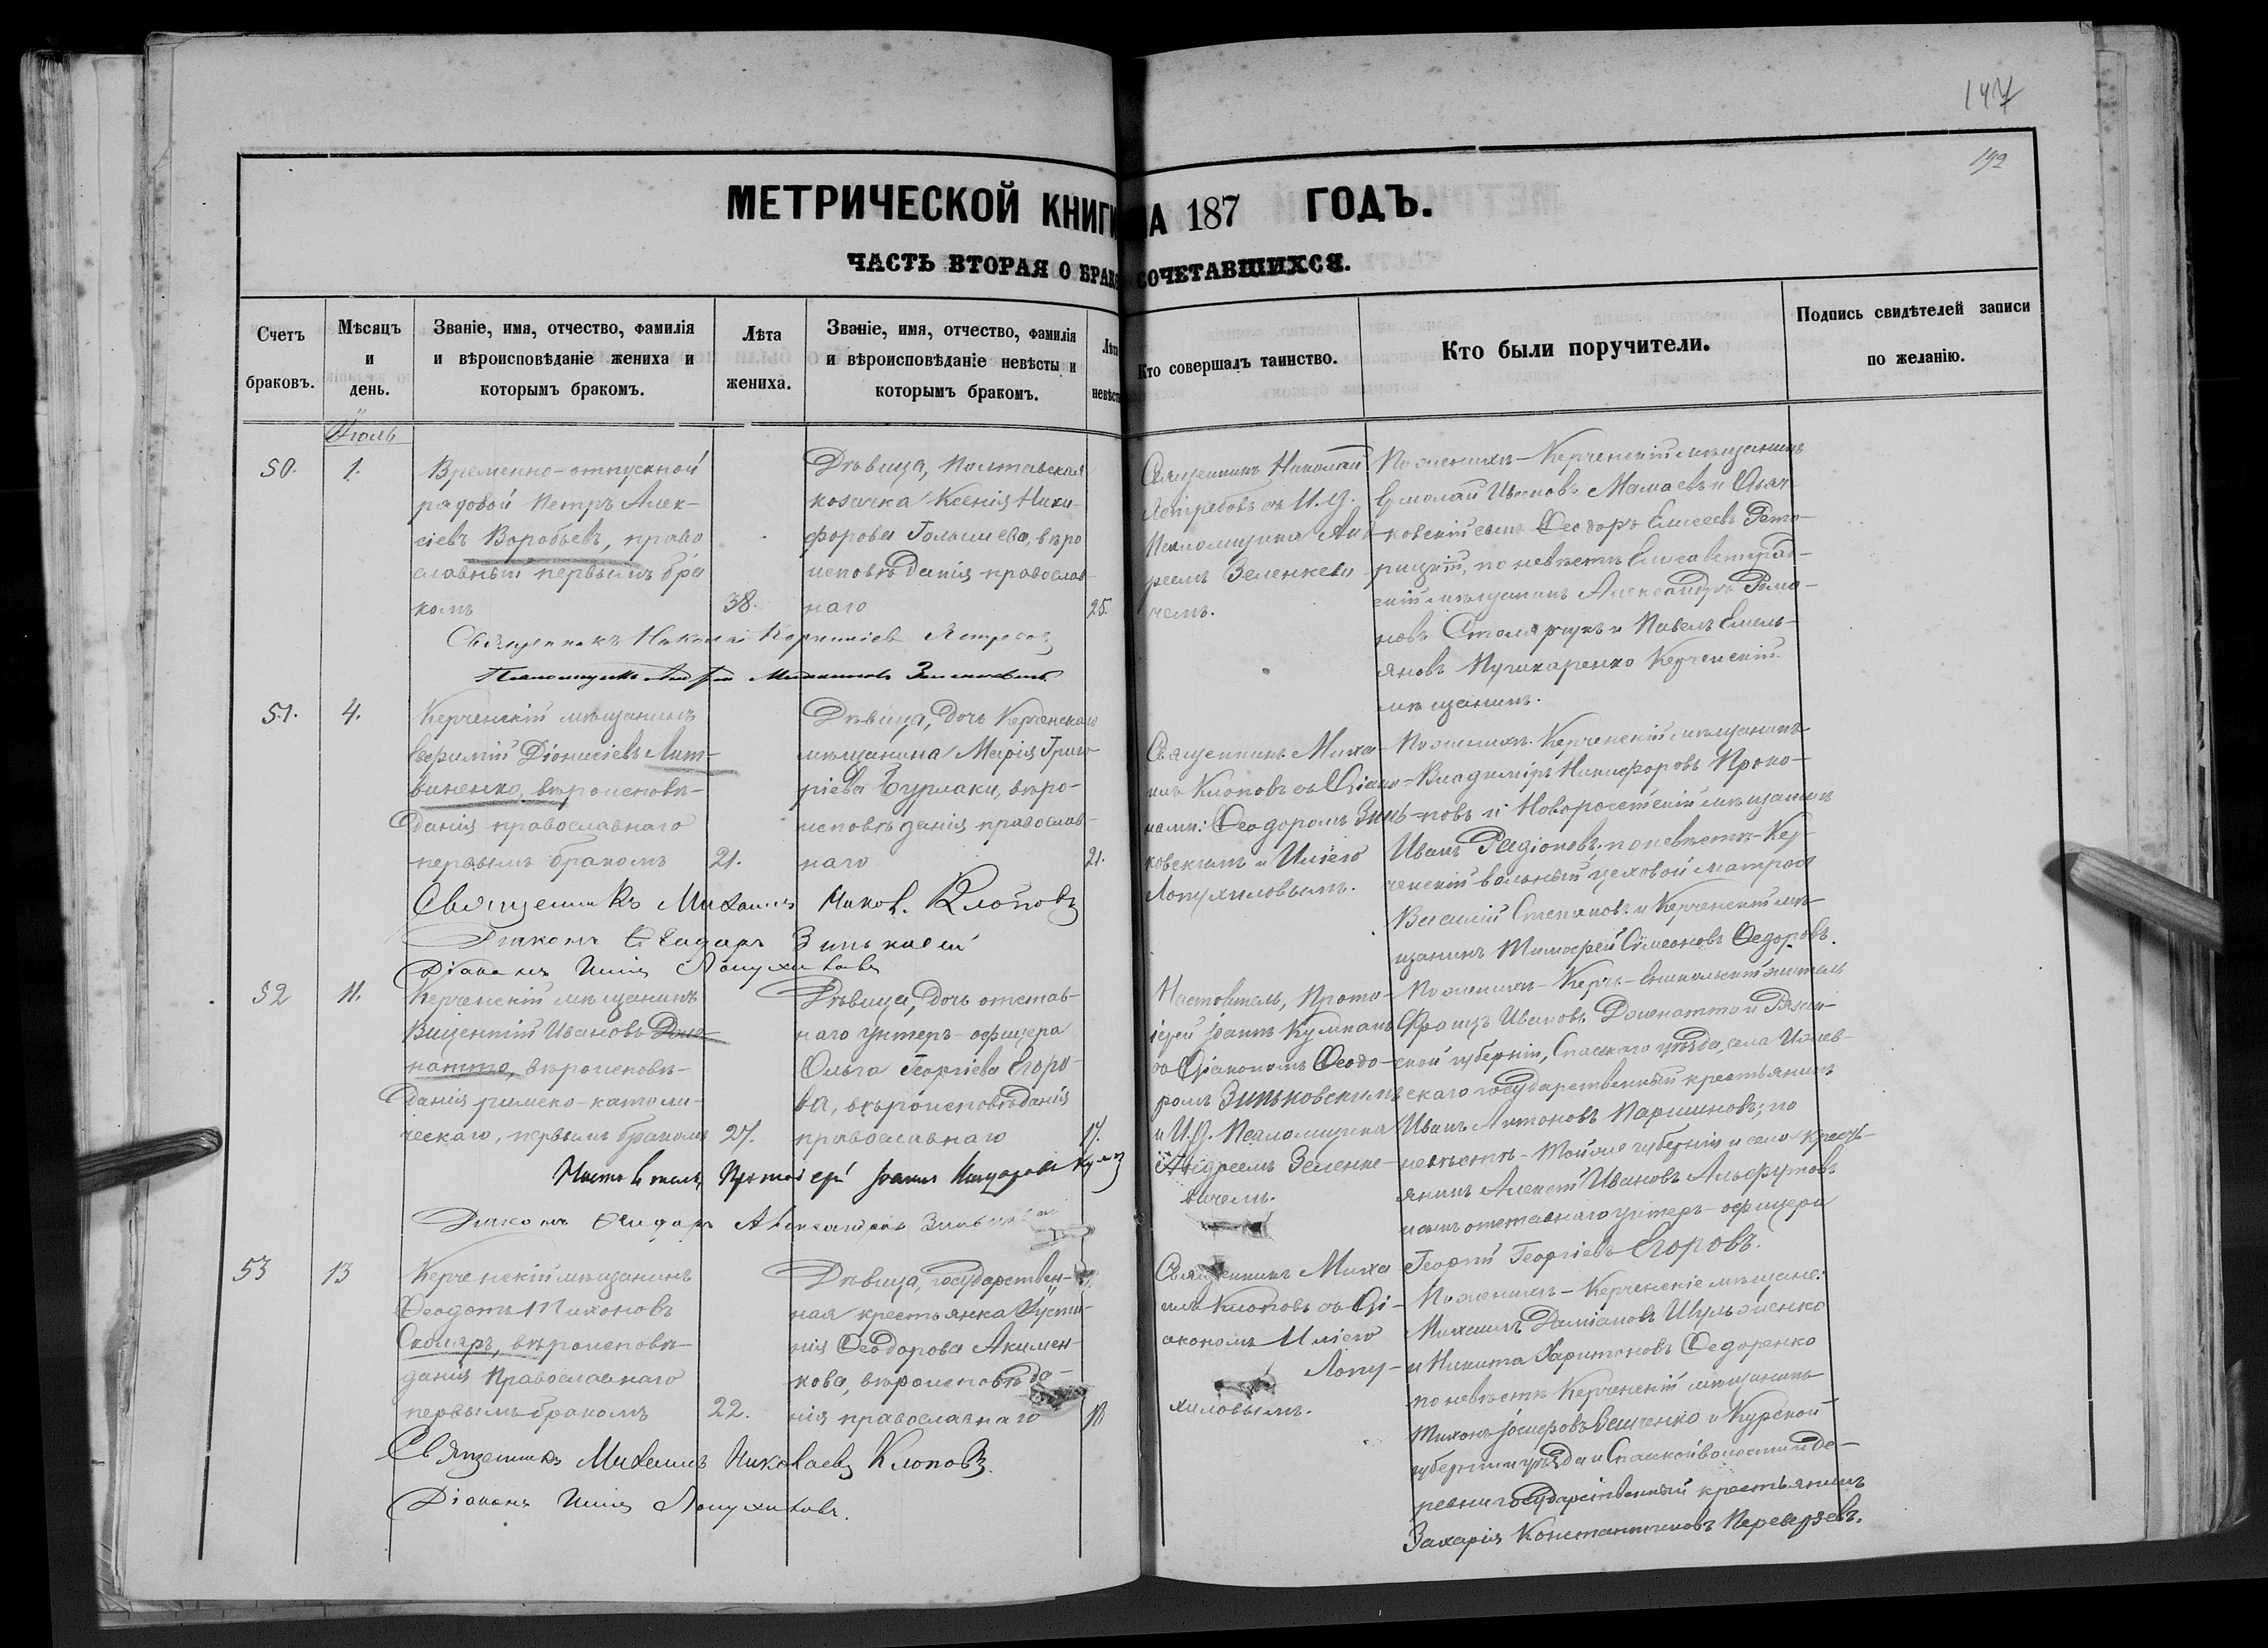 147
192
МЕТРИЧЕСКОЙ КНИГИ НА 187 ГОДЪ.
ЧАСТЬ ВТОРАЯ О БРАКОСОЧЕТАВШИХСЯ.
Счетъ браковъ.
Мѣсяцъ и день.
Званіе, имя, отчество, фамилія
и вѣроисповѣданіе жениха и
которымъ бракомъ.
Лѣта жениха.
Званіе, имя, отчество, фамилія
и вѣроисповѣданіе невѣсты и
которымъ бракомъ.
Лѣта невѣст
Кто совершалъ таинство.
Кто были поручители.
Подпись свидѣтелей записи
по желанію.
Іюль
50.
1.
Временно-отпускной
рядовой Петръ Алек-
сіевъ Воробьевъ, право
славный первымъ бра
комъ
38.
Дѣвица, Полтавская
козачка Ксенія Ники-
форова, вѣро
исповѣданія православ-
наго
25.
Священникъ Николай
Ястребовъ съ И.д.
Псаломщика Анд-
реемъ Зеленкеви
чемъ.
По женихѣ-Керченскій мѣщанинъ
Ермолай Ивановъ Мамаевъ и
сынъ Ѳеодоръ Елисеевъ
по невѣстѣ Елисаветград-
скій мѣщанинъ Александръ Рома-
новъ Столярчукъ и Павелъ Емель-
яновъ Пушкаренко Керченскій
мѣщанинъ.
Священникъ Николай Ястребовъ
51.
4.
Керченскій мѣщанинъ
Евфимій Діонисіевъ Лит-
виненко, вѣроисповѣ-
данія православнаго
первымъ бракомъ
21.
Дѣвица, дочь Керченскаго
мѣщанина Марія Григо
ріева Бурлаки, вѣро-
исповѣданія православ-
наго
21.
Священникъ Миха-
илъ Клоповъ съ Діако-
нами: Ѳеодоромъ Зинь-
ковскимъ и Иліею
Лопухиловымъ.
По женихѣ-Керченскій мѣщанинъ
Владиміръ Никифоровъ Проко-
повъ и мѣщанинъ
Иванъ Радіоновъ. по невѣстѣ-Кер-
ченскій вольный цеховой матросъ
Василій Степановъ и Керченскій мѣ-
щанинъ Тимофей Симеоновъ Ѳедоровъ.
Священникъ Михаилъ Никол. Клоповъ
Діаконъ Ѳеодоръ Зиньковскій
Діаконъ Илія Лопухиловъ
52
11.
Керченскій мѣщанинъ
Викентій Ивановъ Доне-
натто, вѣроисповѣ-
данія римско-католи-
ческаго, первымъ бракомъ
27.
Дѣвица, дочь отстав-
наго унтеръ-офицера
Ольга Георгіева Егоро-
ва, вѣроисповѣданія
православнаго
17.
Настоятель, Прото-
іерей Іоаннъ
съ Діакономъ Ѳеодо-
ромъ Зиньковскимъ
и И.д. Псаломщика
Андреемъ Зеленке-
вичемъ.
По женихѣ-Керчь-Еникольскій житель
Францъ Ивановъ Доненатто и Рязан-
ской губерніи, Спасскаго уѣзда, села Ижев-
скаго государственный крестьянинъ
Иванъ Антоновъ Паршиновъ; по
невѣстѣ-Той же губерніи и села кресть-
янинъ Алексѣй Ивановъ
сынъ отставнаго унтеръ-офицера
Георгій Георгіевъ Егоровъ.
Настоятель, Протоіерей Іоаннъ
Діаконъ Ѳеодоръ Александровъ
53
13
Керченскій мѣщанинъ
Ѳеодотъ Тихоновъ
Скляръ, вѣроисповѣ-
данія Православнаго
первымъ бракомъ
22.
Дѣвица, государствен-
ная крестьянка Іусти-
нія Ѳеодорова Акимен-
кова, вѣроисповѣда-
нія православнаго
18
Священникъ Миха
илъ Клоповъ съ Ді-
акономъ Иліею
Лопу-
хиловымъ.
По женихѣ-Керченскіе мѣщане:
Михаилъ Даміановъ Шульженко
и Никита Харитоновъ Ѳедоренко
по невѣстѣ Керченскій мѣщанинъ
Тихонъ Іосифовъ и Курской
губерніи уѣзда и Спасской волости и де-
ревни государственный крестьянинъ
Захарія Константиновъ Переверзевъ.
Священникъ Михаилъ Николаевъ Клоповъ.
Діаконъ Илія Лопухиловъ.